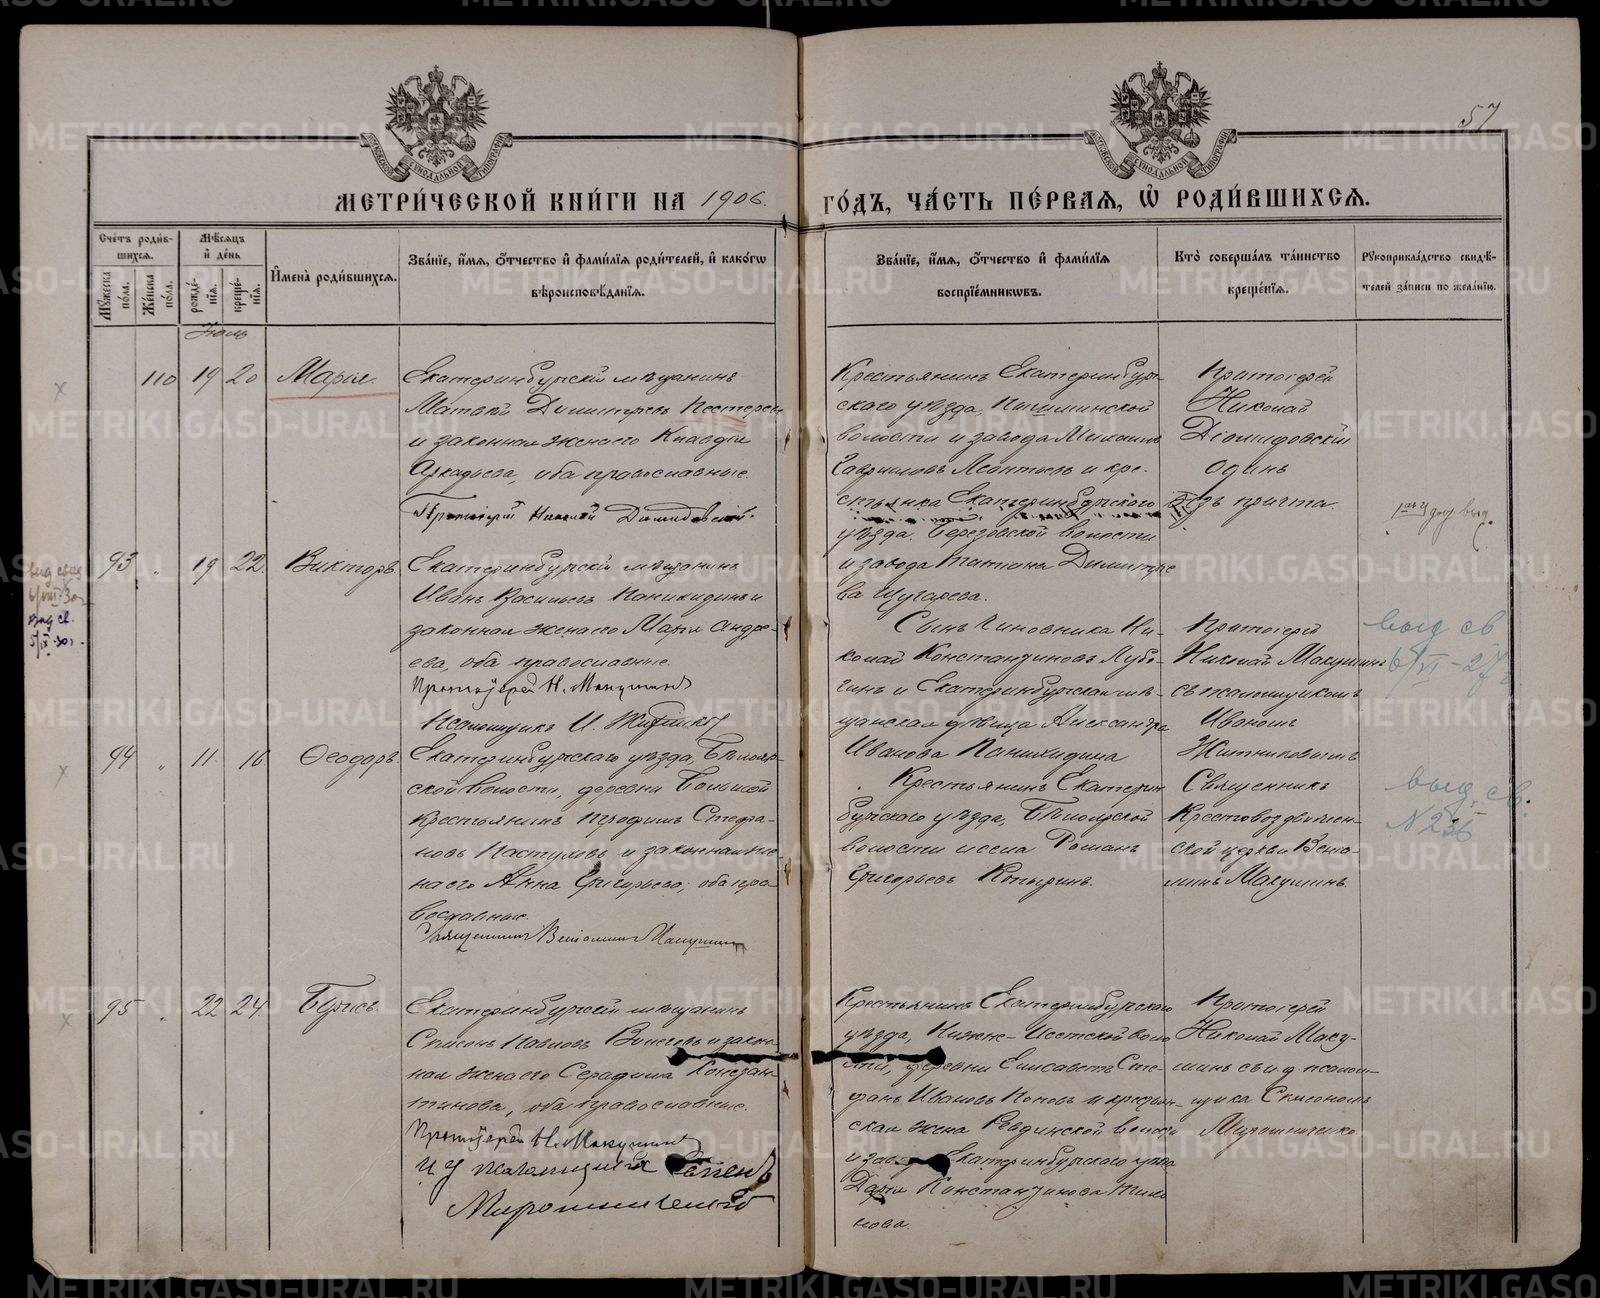 57
МЕТРИ́ЧЕСКОЙ КНИ́ГИ НА 1906.
ГО́ДЪ, ЧА́СТЬ ПЕ́РВАѦ, Ѡ҆ РОДИ́ВШИХСѦ.
Сче́тъ роди́в-
шихсѧ.
Мѹ́жеска по́ла.
Же́нска по́ла.
Мѣ́сѧцъ
и҆ де́нь
рожде́-
нїѧ.
креще́-
нїѧ.
И҆мена̀ роди́вшихсѧ.
Зва́нїе, и҆́мѧ, ѻ҆́тчество и҆ фами́лїѧ роди́телей, и҆ како́гѡ
вѣроисповѣ́данїѧ.
Зва́нїе, и҆́мѧ, ѻ҆́тчество и҆ фами́лїѧ
воспрїе́мникѡвъ.
Кто̀ соверша́лъ та́инство
креще́нїѧ.
Рꙋкоприкла́дство свидѣ́-
телей за́писи по жела́нїю.
Іюль
110 19 20 Марія.
Екатеринбургскій мѣщанинъ
Матвѣй Димитріевъ Нестеровъ
и законная жена его Клавдія
Аркадьева, оба православные.
Протоіерей Николай Діомидовскій.
Крестьянинъ Екатеринбург-
скаго уѣзда, Пышминской
волости и завода Михаилъ
Гавриловъ Леонтьевъ и кре-
стьянка Екатеринбургскаго
уѣзда, Березовской волости
и завода Татіана Димитріе
ва Цугарева.
Протоіерей
Николай
Діомидовскій
одинъ
безъ причта.
93 " 19 22. Викторъ.
Екатеринбургскій мѣщанинъ
Иванъ Васильевъ Панихидинъ и
законная жена его Марія Андре-
ева, оба православные.
Протоіерей Н. Макушинъ
Псаломщикъ И. Житниковъ
Сынъ чиновника Ни-
колай Константиновъ
и Екатеринбургская мѣ-
щанская дѣвица Александра
Иванова Панихидина
Протоіерей
Николай Макушинъ
съ псаломщикомъ
Иваномъ
Житниковымъ
выд св
94 " 11 16 Ѳеодоръ.
Екатеринбургскаго уѣзда, Бѣлояр-
ской волости, деревни Большой
крестьянинъ Трофимъ Стефа-
новъ Пастуховъ и законная же-
на его Анна Григорьева, оба пра-
вославные.
Священникъ Веніаминъ Макушинъ
Крестьянинъ Екатерин
бургскаго уѣзда, Бѣлоярской
волости и села Романъ
Григорьевъ Копыринъ.
Священникъ
Крестовоздвижен-
ской церкви Веніа-
минъ Макушинъ.
выд. св.
N 236
95 " 22 24. Борисъ.
Екатеринбургскій мѣщанинъ
Симеонъ Павловъ и закон-
ная жена его Серафима Констан-
тинова, оба православные.
Протоіерей Н. Макушинъ
Мирошниченко
Крестьянинъ Екатеринбургскаго
уѣзда, Нижне-Исетской воло
сти, деревни Елисаветъ Сте-
фанъ Ивановъ Поповъ и крестьян-
ская жена Ревдинской волости
и завода Екатеринбургскаго уѣзда
Дарія Константинова Тихо
нова.
Протоіерей
Николай Маку-
шинъ съ и.д. псалом-
щика Симеономъ
Мирошниченко